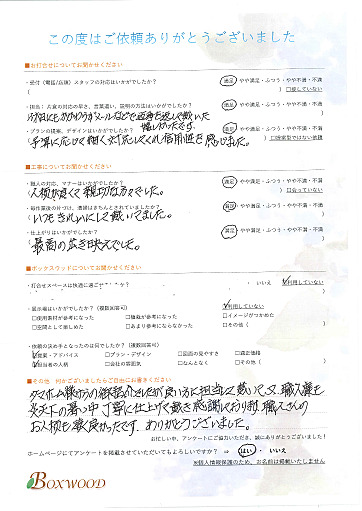 この度はご依頼ありがとうございました
■お打合せについてお聞かせください
・受付(電話/店頭)スタッフの対応はいかがでしたか? 満足・やや満足・ふつう・やや不満・不満
( □接していない
・担当: 対応の早さ、言葉遣い、説明の方法はいかがでしたか? 満足・やや満足・ふつう・やや不満・不満
・プランの提案、デザインはいかがでしたか? 満足・やや満足・ふつう・やや不満・不満
予算に応じて
■工事についてお聞かせください
・職人の対応、マナーはいかがでしたか? 満足・やや満足・ふつう・やや不満・不満
人柄が良くて親切な方々でした。 □会っていない
・毎作業後の片づけ、清掃はきちんとされていましたか? 満足・やや満足・ふつう・やや不満・不満
いつもきれいにして戴いてました。
・仕上がりはいかがでしたか? 満足・やや満足・ふつう・やや不満・不満
最高の
■ボックスウッドについてお聞かせください
・打合せスペースは快適に過ご ・いいえ □利用していない
・展示場はいかがでしたか?(複数回答可) □利用していない
□使用素材が参考になった □植栽が参考になった □イメージがつかめた
□空間として楽しめた □あまり参考にならなかった □その他(
・依頼の決め手となったのは何でしたか?(複数回答可)
□提案・アドバイス □プラン・デザイン □図面の見やすさ □適正価格
□担当者の人柄 □会社の雰囲気 □なんとなく □その他(
■その他 何かございましたらご自由にお書きください
良い方に担当して戴いて、又、職人さんも
炎天下の暑い中、丁寧に仕上げて戴き感謝しております。職人さんの
お人柄も凄く良かったです。ありがとうございました。
お忙しい中、アンケートにご協力いただき、誠にありがとうございます!
ホームページにてアンケートを掲載させていただいてもよろしいですか? ⇒ はい・いいえ
※個人情報保護のため、お名前は掲載いたしません
BOXWOOD